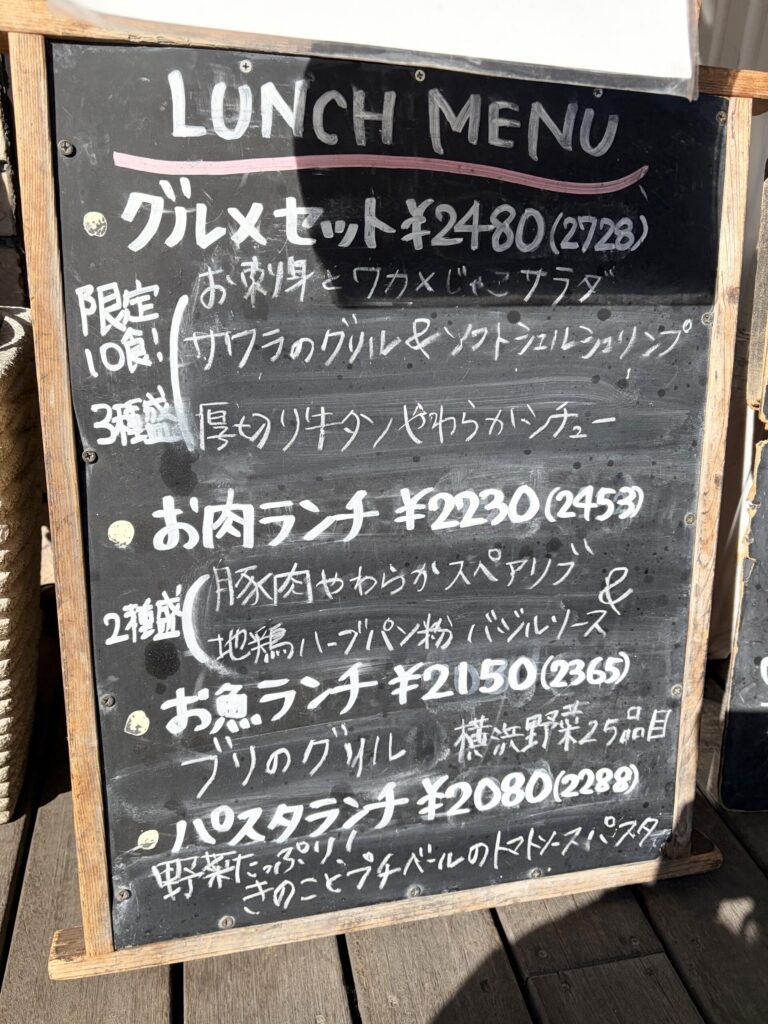 LUNCH MENU
グルメセット ¥2480(2728)
限定
10食!
お刺身とワカメじゃこサラダ
サワラのグリル&ソフトシェルシュリンプ
3種盛
厚切り牛タンやわらかシチュー
お肉ランチ ¥2230(2453)
2種盛
豚肉やわらかスペアリブ &
地鶏ハーブパン粉 バジルソース
お魚ランチ ¥2150(2365)
ブリのグリル 横浜野菜25品目
パスタランチ ¥2080(2288)
野菜たっぷり!
きのことプチベールのトマトソースパスタ